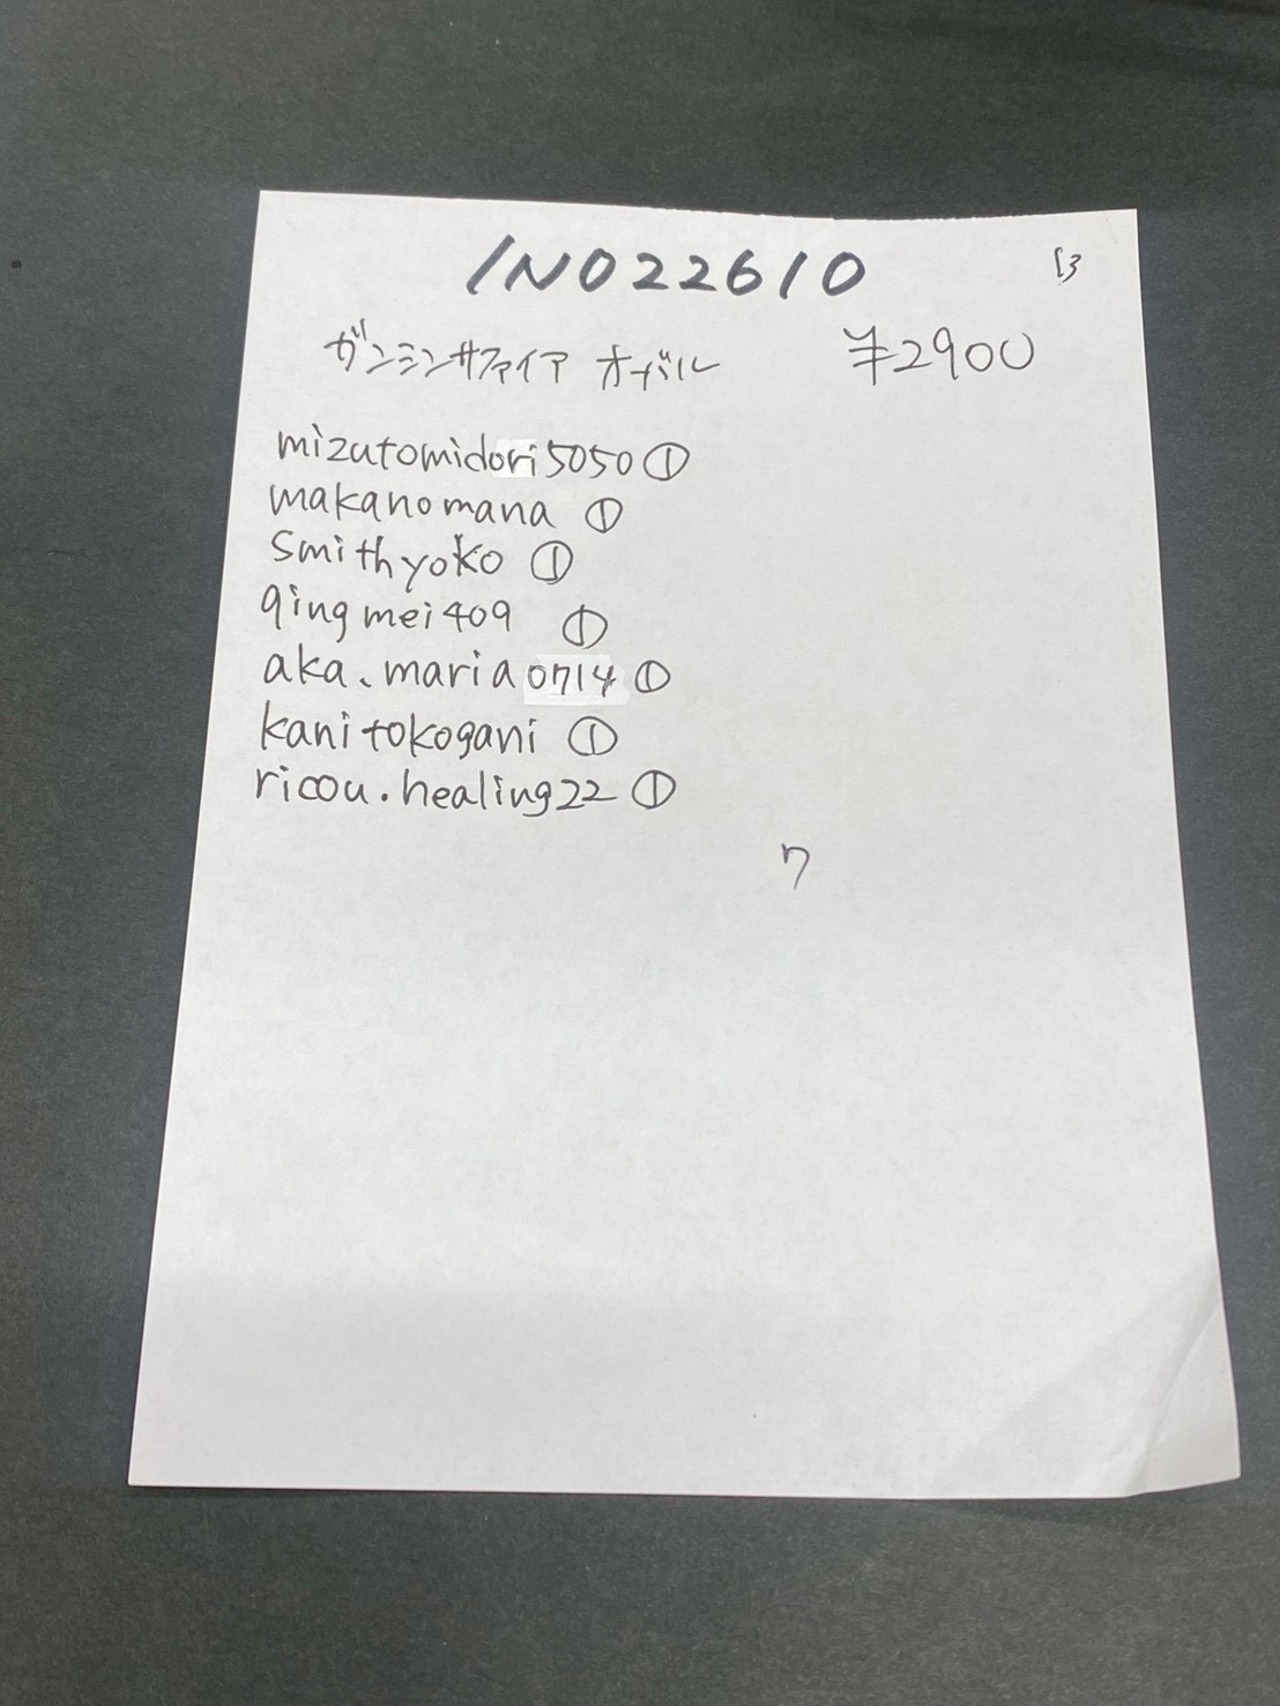 INO22610
ガンシンサファイア オーバル ¥2900
mizutomidori5050①
makanomana ①
smithyoko ①
qingmei409 ①
aka.maria0714①
kanitokogani ①
ricou.healing22①
7